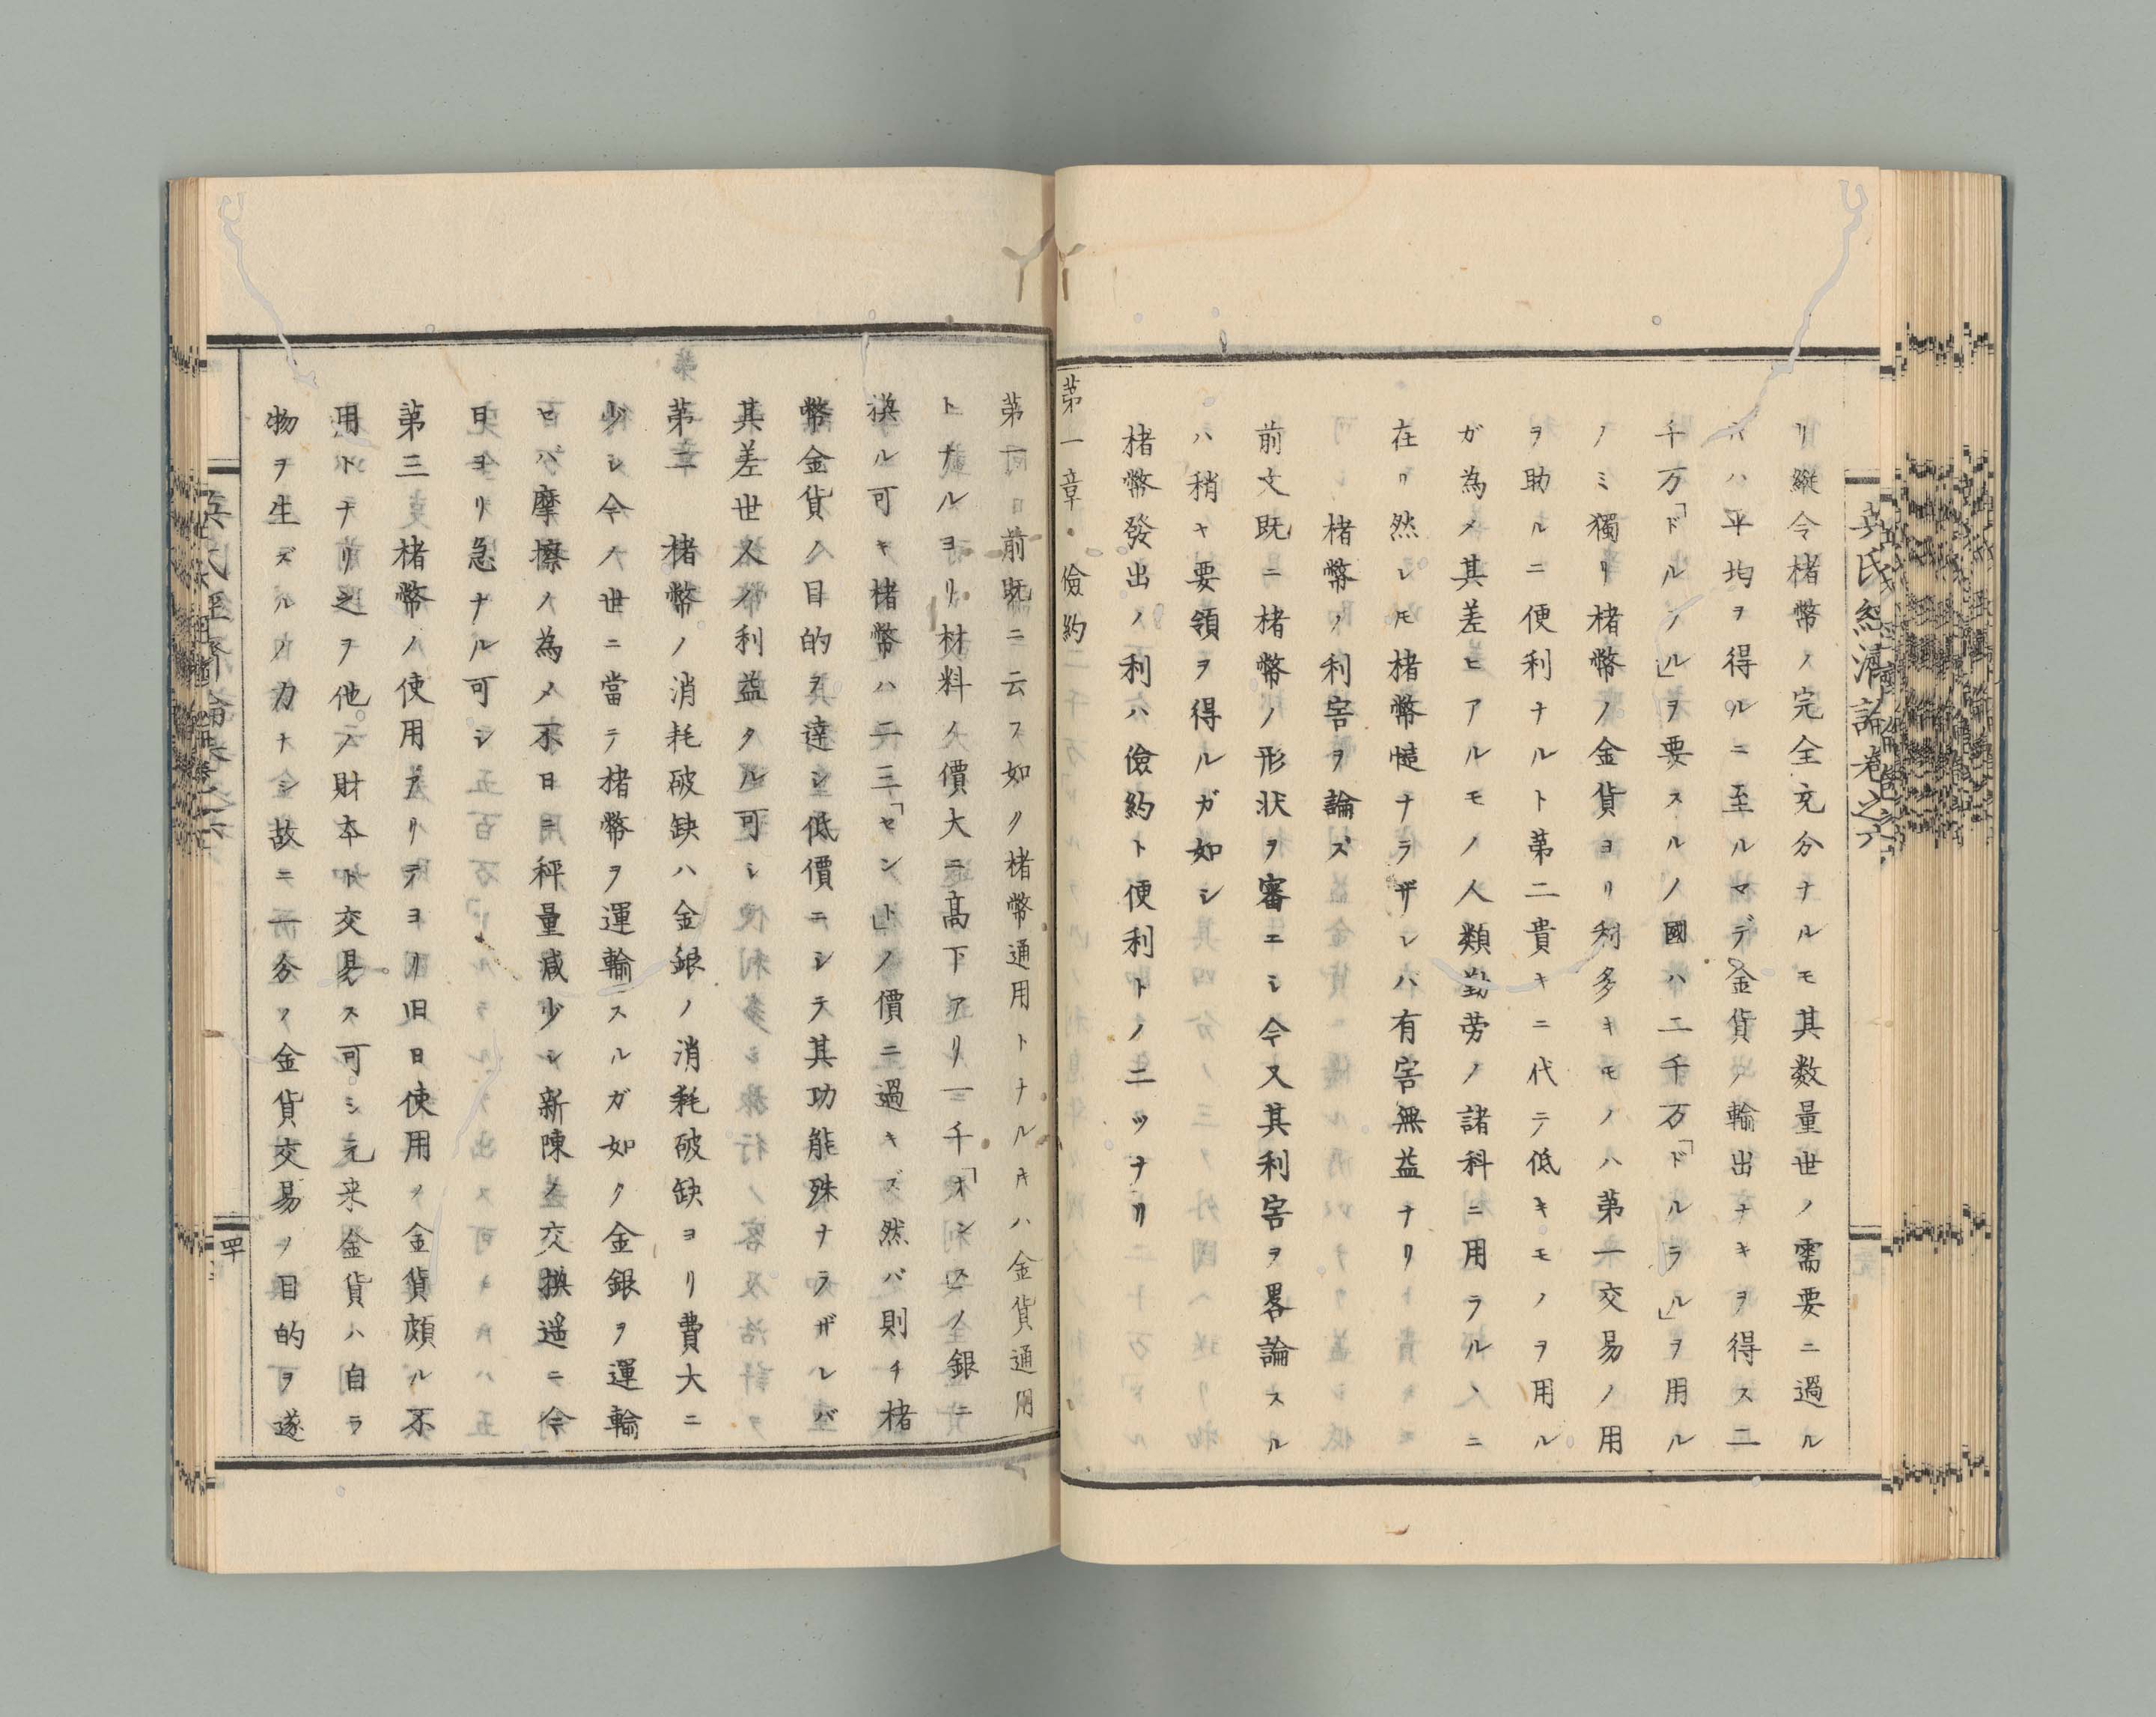 英氏經濟論卷之六
リ縱令楮幣ノ完全充分ナルモ其数量世ノ需要ニ過ル
ハ平均ヲ得ルニ至ルマデ金貨ノ輸出ナキヲ得ス二
千万「ドルラル」ヲ要スルノ國ハ二千万「ドルラル」ヲ用ル
ノミ獨リ楮幣ノ金貨ヨリ利多キモノハ第一交易ノ用
ヲ助ルニ便利ナルト第二貴キニ代テ低キモノヲ用ル
ガ為メ其差ヒアルモノ人類勤労ノ諸科ニ用ラルヽニ
在リ然レ𪜈楮幣慥ナラザレハ有害無益ナリ
楮幣ノ利害ヲ論ズ
前文既ニ楮幣ノ形状ヲ審ニシ今又其利害ヲ畧論スル
ハ稍ヤ要領ヲ得ルガ如シ
楮幣發出ノ利ハ儉約ト便利トノ二ツナリ
第一章 儉約
第一 前既ニ云フ如ク楮幣通用トナルキハ金貨通用
トナルヨリ材料ノ價大ニ高下アリ一千「オンス」ノ銀ニ
換ル可キ楮幣ハ二三「セント」ノ價ニ過キズ然バ則チ楮
幣金貨ノ目的ヲ達シ低價ニシテ其功能殊ナラザレバ
其差世人ノ利益タル可シ
第二 楮幣ノ消耗破缺ハ金銀ノ消耗破缺ヨリ費大ニ
少シ今ノ世ニ當テ楮幣ヲ運輸スルガ如ク金銀ヲ運輸
セハ摩擦ノ為メ不日ニ秤量减少シ新陳ノ交換遥ニ今
日ヨリ急ナル可シ
第三 楮幣ノ使用アリテヨリ旧日使用ノ金貨頗ル不
用トナリ之ヲ他ノ財本ト交易ス可シ元来金貨ハ自ラ
物ヲ生ズルノ力ナシ故ニ一分ノ金貨交易ノ目的ヲ遂
英氏經濟論卷之六
四